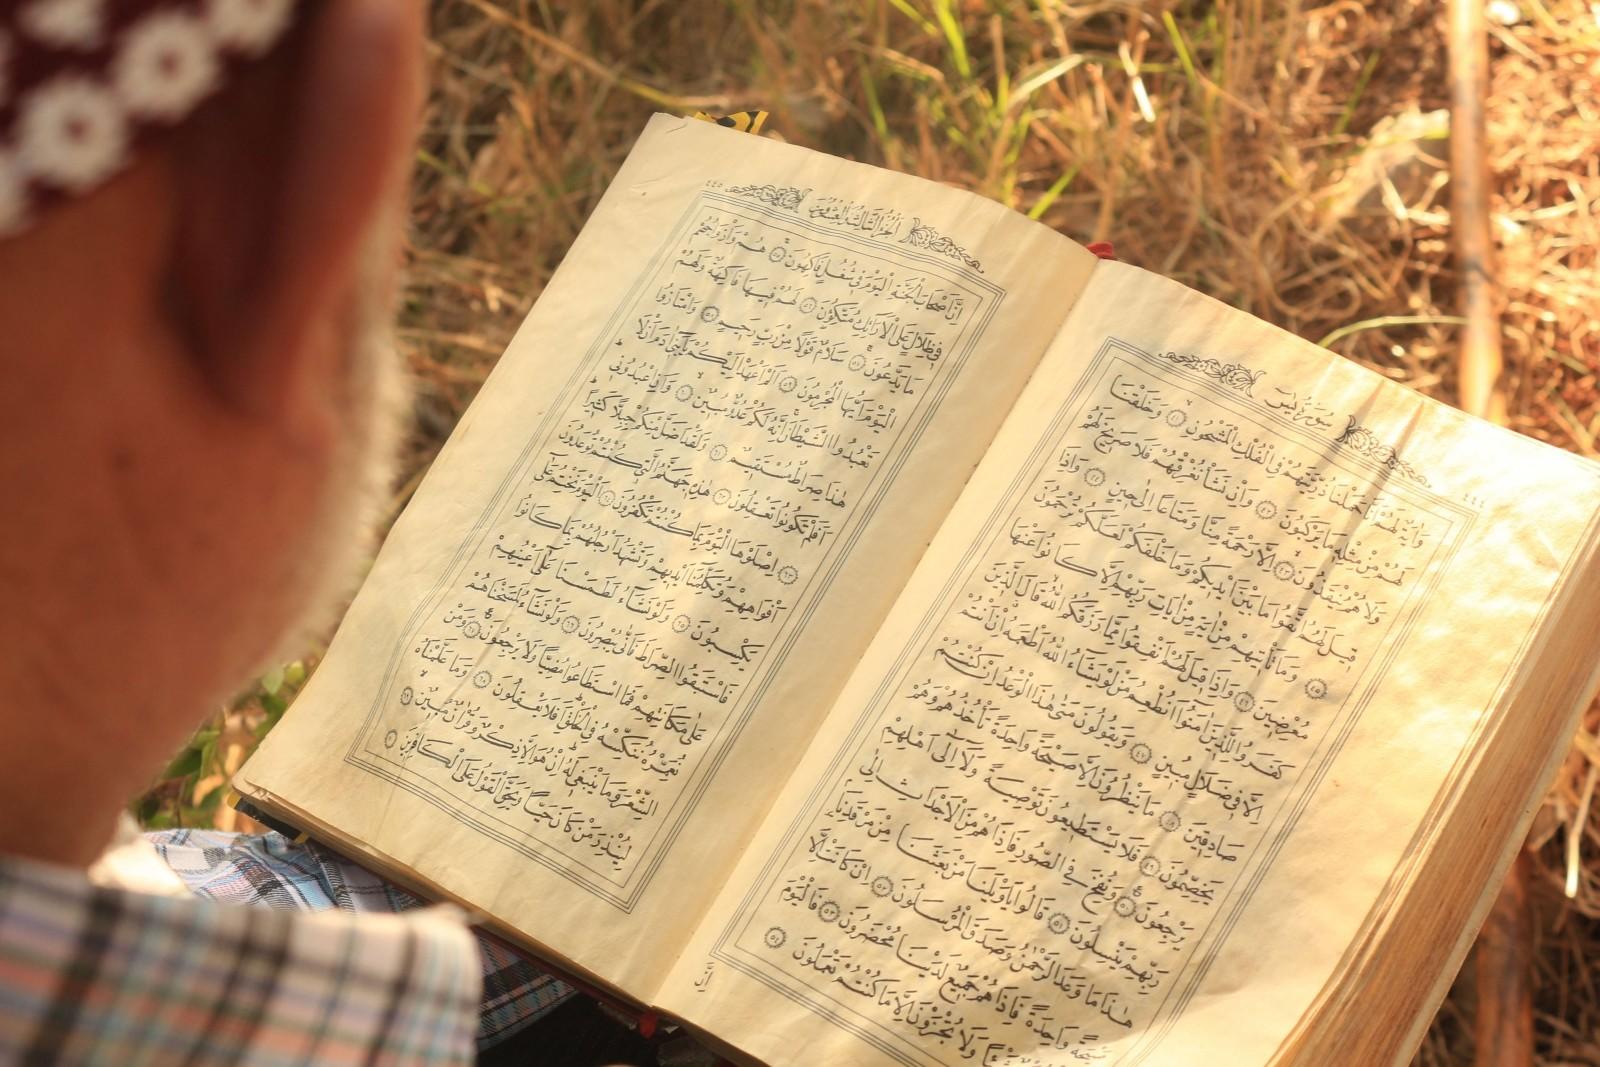 سورة يس
٤٤٤
وَاٰيَةٌ لَهُمْ اَنَّا حَمَلْنَا ذُرِّيَّتَهُمْ فِى الْفُلْكِ الْمَشْحُونِ ٤١ وَخَلَقْنَا
لَهُمْ مِنْ مِثْلِهِ مَا يَرْكَبُونَ ٤٢ وَاِنْ نَشَأْ نُغْرِقْهُمْ فَلَا صَرِيخَ لَهُمْ
وَلَا هُمْ يُنْقَذُونَ ٤٣ اِلَّا رَحْمَةً مِنَّا وَمَتَاعًا اِلٰى حِينٍ ٤٤ وَاِذَا
قِيلَ لَهُمُ اتَّقُوا مَا بَيْنَ اَيْدِيكُمْ وَمَا خَلْفَكُمْ لَعَلَّكُمْ تُرْحَمُونَ
٤٥ وَمَا تَأْتِيهِمْ مِنْ اٰيَةٍ مِنْ اٰيَاتِ رَبِّهِمْ اِلَّا كَانُوا عَنْهَا
مُعْرِضِينَ ٤٦ وَاِذَا قِيلَ لَهُمْ اَنْفِقُوا مِمَّا رَزَقَكُمُ اللّٰهُ قَالَ الَّذِينَ
كَفَرُوا لِلَّذِينَ اٰمَنُوا اَنُطْعِمُ مَنْ لَوْ يَشَاءُ اللّٰهُ اَطْعَمَهُ اِنْ اَنْتُمْ
اِلَّا فِى ضَلَالٍ مُبِينٍ ٤٧ وَيَقُولُونَ مَتٰى هٰذَا الْوَعْدُ اِنْ كُنْتُمْ
صَادِقِينَ ٤٨ مَا يَنْظُرُونَ اِلَّا صَيْحَةً وَاحِدَةً تَأْخُذُهُمْ وَهُمْ
يَخِصِّمُونَ ٤٩ فَلَا يَسْتَطِيعُونَ تَوْصِيَةً وَلَا اِلٰى اَهْلِهِمْ
يَرْجِعُونَ ٥٠ وَنُفِخَ فِى الصُّورِ فَاِذَا هُمْ مِنَ الْاَجْدَاثِ اِلٰى
رَبِّهِمْ يَنْسِلُونَ ٥١ قَالُوا يَا وَيْلَنَا مَنْ بَعَثَنَا مِنْ مَرْقَدِنَا
هٰذَا مَا وَعَدَ الرَّحْمٰنُ وَصَدَقَ الْمُرْسَلُونَ ٥٢ اِنْ كَانَتْ اِلَّا
صَيْحَةً وَاحِدَةً فَاِذَا هُمْ جَمِيعٌ لَدَيْنَا مُحْضَرُونَ ٥٣ فَالْيَوْمَ
شَيْئًا وَلَا تُجْزَوْنَ اِلَّا مَا كُنْتُمْ تَعْمَلُونَ ٥٤
اِنَّ
اَلْجُزْءُ الثَّالِثُ وَالْعِشْرُونَ
٤٤٥
اِنَّ اَصْحَابَ الْجَنَّةِ الْيَوْمَ فِى شُغُلٍ فَاكِهُونَ ٥٥ هُمْ وَاَزْوَاجُهُمْ
فِى ظِلَالٍ عَلَى الْاَرَائِكِ مُتَّكِؤُنَ ٥٦ لَهُمْ فِيهَا فَاكِهَةٌ وَلَهُمْ
مَا يَدَّعُونَ ٥٧ سَلَامٌ قَوْلًا مِنْ رَبٍّ رَحِيمٍ ٥٨ وَامْتَازُوا
الْيَوْمَ اَيُّهَا الْمُجْرِمُونَ ٥٩ اَلَمْ اَعْهَدْ اِلَيْكُمْ يَا بَنِى اٰدَمَ اَنْ لَا
تَعْبُدُوا الشَّيْطَانَ اِنَّهُ لَكُمْ عَدُوٌّ مُبِينٌ ٦٠ وَاَنِ اعْبُدُونِى
هٰذَا صِرَاطٌ مُسْتَقِيمٌ ٦١ وَلَقَدْ اَضَلَّ مِنْكُمْ جِبِلًّا كَثِيرًا
اَفَلَمْ تَكُونُوا تَعْقِلُونَ ٦٢ هٰذِهِ جَهَنَّمُ الَّتِى كُنْتُمْ تُوعَدُونَ
٦٣ اِصْلَوْهَا الْيَوْمَ بِمَا كُنْتُمْ تَكْفُرُونَ ٦٤ اَلْيَوْمَ نَخْتِمُ عَلٰى
اَفْوَاهِهِمْ وَتُكَلِّمُنَا اَيْدِيهِمْ وَتَشْهَدُ اَرْجُلُهُمْ بِمَا كَانُوا
يَكْسِبُونَ ٦٥ وَلَوْ نَشَاءُ لَطَمَسْنَا عَلٰى اَعْيُنِهِمْ
فَاسْتَبَقُوا الصِّرَاطَ فَاَنّٰى يُبْصِرُونَ ٦٦ وَلَوْ نَشَاءُ لَمَسَخْنَاهُمْ
عَلٰى مَكَانَتِهِمْ فَمَا اسْتَطَاعُوا مُضِيًّا وَلَا يَرْجِعُونَ ٦٧ وَمَنْ
نُعَمِّرْهُ نُنَكِّسْهُ فِى الْخَلْقِ اَفَلَا يَعْقِلُونَ ٦٨ وَمَا عَلَّمْنَاهُ
الشِّعْرَ وَمَا يَنْبَغِى لَهُ اِنْ هُوَ اِلَّا ذِكْرٌ وَقُرْاٰنٌ مُبِينٌ ٦٩
لِيُنْذِرَ مَنْ كَانَ حَيًّا وَيَحِقَّ الْقَوْلُ عَلَى الْكَافِرِينَ ٧٠